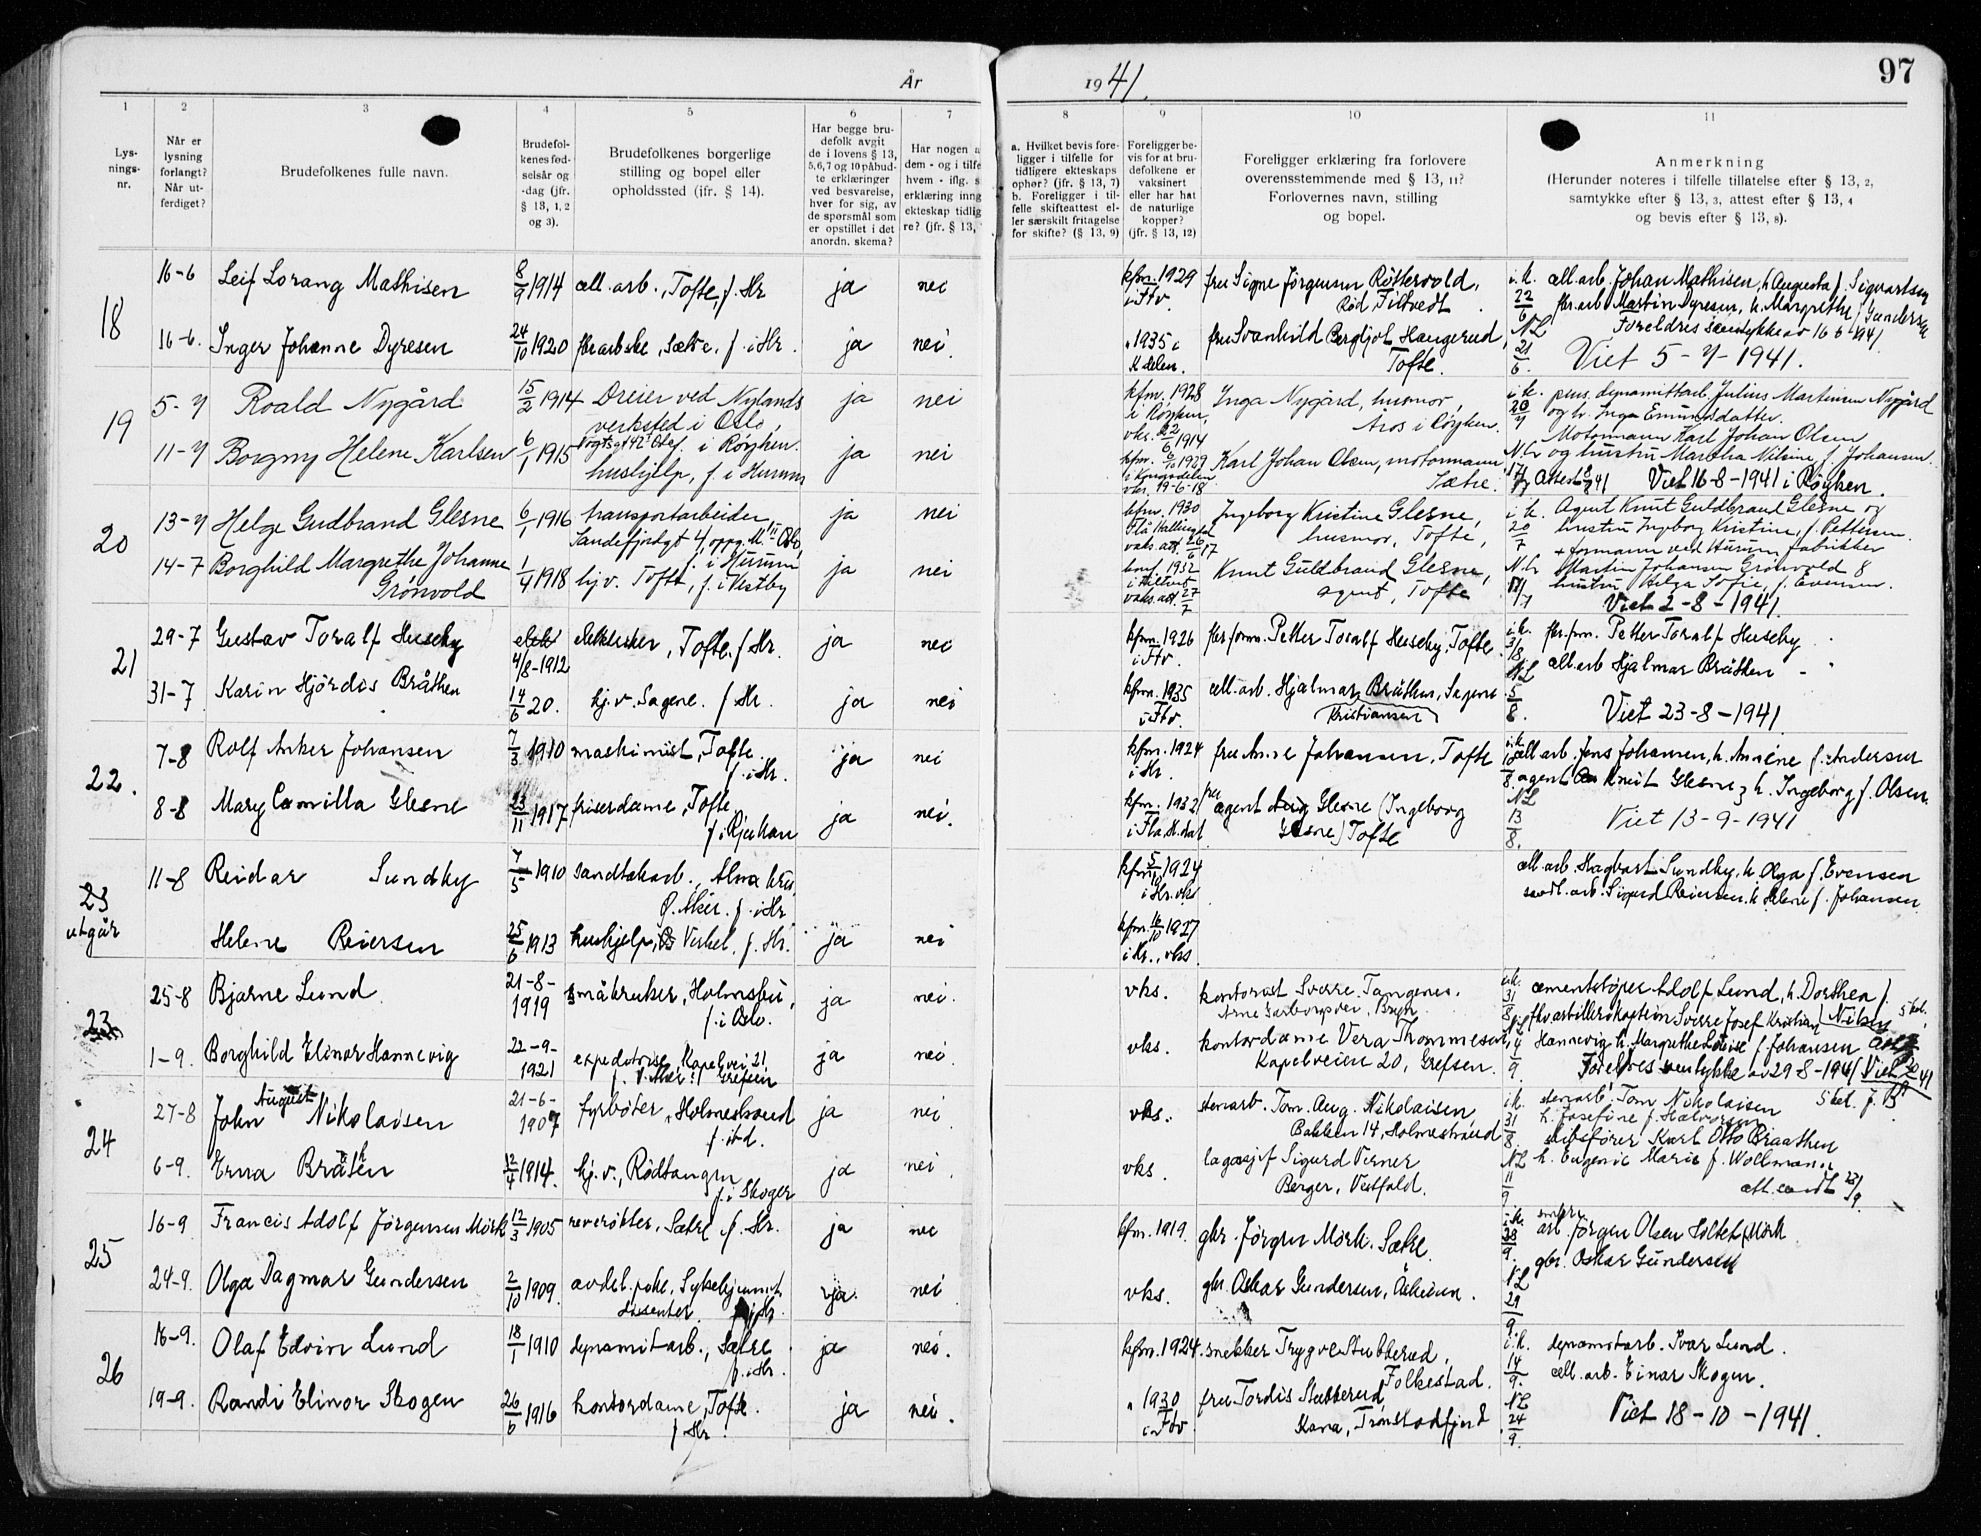 År 1941.
97
1 2 3 4 5 6 7 8 9 10 11
Lysningsnr.
Når er lysning forlangt? Når utferdiget?
Brudefolkenes fulle navn.
Brudefolkenes fødselsår og -dag (jfr. § 13, 1, 2 og 3).
Brudefolkenes borgerlige stilling og bopel eller opholdssted (jfr. § 14).
Har begge brudefolk avgit de i lovens § 13, 5, 6, 7 og 10 påbudte erklæringer ved besvarelse, hver for sig, av de spørsmål som er opstillet i det anordn. skema?
Har nogen a
dem - og i tilfe
hvem - iflg. s
erklæring inng
ekteskap tidlig
re? (jfr. § 13,
a. Hvilket bevis foreligger i tilfelle for tidligere ekteskaps ophør? (jfr. § 13, 7)
b. Foreligger i tilfelle skifteattest eller særskilt fritagelse for skifte? (§ 13, 9)
Foreligger bevis for at brudefolkene er vaksinert eller har hat de naturlige kopper? (jfr. § 13, 12)
Foreligger erklæring fra forlovere overensstemmende med § 13, 11? Forlovernes navn, stilling og bopel.
Anmerkning
(Herunder noteres i tilfelle tillatelse efter § 13, 2, samtykke efter § 13, 3, attest efter § 13, 4 og bevis efter § 13, 8).
18
16-6 Leif Lorang Mathisen 8/9 1914 cell. arb., Tofte, f. Hr ja nei kfm. 1929 i Ftv. fru Signe Jørgensen Røttervold, Rød, Filtvedt i.k. 22/6 cell. arb. Johan Mathisen, h. Augusta f. Sigvartsen
fbr. arb Martin Dyresen, h. Margrethe f. Gundersen
16-6. Inger Johanne Dyresen 24/10 1920 fbrarbske, Sætre, f. i Hr. ja nei. " 1935 i fru Svanhild Bergljot Haugerud, Tofte. NL 21/6 Foreldres samtykke av 16 6 1941
Viet 5-7-1941.
19
5-7 Roald Nygård 15/2 1914 Dreier ved Nylands verksted i Oslo, f. i Røyken. ja nei kfm. 1928 i Røyken, Inga Nygård, husmor, Aros i Røyken. i k. 20/7 pens. dynamittarb. Julius Martinsen Nygård
og h. Inga Emundsdatter.
11-7 Borgny Helene Karlsen 6/1 1915 hushjelp, f. i Hurum ja nei Karl Johan Olsen, motormann Sætre. N.L. Motormann Karl Johan Olsen
og hustru Martha Nilsine, f. Johansen.
Viet 16-8-1941 i Røyken.
20
13-7 Helge Gudbrand Glesne 6/1 1916 transportarbeider, Sandefjordgt 4, oppg. M. II Oslo, f. i Hurum ja nei kfm. 1930 Ingeborg Kristine Glesne, husmor, Tofte, i k. 20/7 Agent Knut Guldbrand Glesne og
hustru Ingeborg Kristine, f. Pettersen.
14-7 Borghild Margrethe Johanne Grønvold 1/4 1918 hj v. Tofte, f. i Vestby ja nei konf. 1932 vaks. att. 27/7 Knut Guldbrand Glesne, agent, Tofte N.L. + formann ved Hurum fabrikker
Martin Johansen Grønvold &
hustru Helga Sofie, f. Evensen.
Viet 2-8-1941.
21
29-7 Gustav Toralf Huseby 4/8-1912 elektriker, Tofte. f Hr. ja nei kfm. 1926 i Ftv. fbr. form. Petter Toralf Huseby, Tofte i.k. 31/8 fbr. fm. Petter Toralf Huseby
31-7 Karin Hjördis Bråthen 14/6 20. hj. v. Sagene. f Hr. ja nei kfm. 1935 i Ftv. cell. arb. Hjalmar Bråthen, Sagene Kristiansen NL 5/8. cell. arb Hjalmar Bråthen
Viet 23-8-1941
22.
7-8 Rolf Anker Johansen 7/3 1910 maskinist, Tofte f. i Hr. ja nei kfm. 1924 i Hr. fru Anne Johansen, Tofte i.k. cell arb. Jens Johansen, h. Annine f. Andersen
8-8 Mary Camilla Glesne 23/11 1917 friserdame, Tofte f. i Rjukan ja nei. kfm. 1932 agent Glesne (Ingeborg Glesne) Tofte NL 13/8. agent Knut Glesne, h. Ingeborg f. Olsen.
Viet 13-9-1941
23
utgår
11-8 Reidar Sundby 7/5 1910 sandtakarb., f. i Hr kfm. 1924 i Hr. vks cell. arb. Hagbart Sundby, h Olga f. Evensen
sandt. arb. Sigurd Reiersen, h Helene f. Johansen
Helene Reiersen 25/6 1913 hushjelp, f. Hr. ja nei kfm. 16/10 1927 i Hr., vks
23
25-8 Bjarne Lund 21-8-1919 småbruker, Holmsbu, f. i Oslo. ja nei. vks. kontorist Sverre Tangenes. i.k. 31/8 cementstøper Adolf Lund, h. Dorthea f. Nilsen
1-9. Borghild Elinor Hannevig 22-9-1921 Kapelvei 21, Grefsen ja nei. vks. kontordame Vera Thommesen, Kapelveien 20, Grefsen. 4/9. Hannevig h. Margrethe Louise f. Johansen
Foreldres samtykke av 29 8-1941 Viet
24
27-8 John August Nikolaisen 21-6-1907 fyrbøter, Holmestrand f. ibd. ja nei vks. stenarb. Tom. Aug. Nikolaisen Bakken 14, Holmestrand i k. 31/8 stenarb. Tom Nikolaisen
h. Josefine f. Halvorsen
6-9. Erna Bråten 12/4 1914. hj. v., Rødtangen f. i Skoger ja nei vks. Sigurd Verner Berger, Vestfold. NL 11/9. skibsfører Karl Otto Braathen
h. Eugenie Marie f. Wollmann
att. sendt 23/9.
25
16-9 Francis Adolf Jørgensen Mörk 12/3 1905 reverøkter, Sætre f. Hr. ja nei kfm. 1919. gbr. Jørgen Mörk. Sætre. i.k. 28/9. arb. Jörgen Olsen Holtet Mörk
24-9. Olga Dagmar Gundersen 2/10 1909. Sykehjemmet ja. nei vks. gbr. Oskar Gundersen, NL 29/9. gbr. Oskar Gundersen
26
16-9. Olaf Edvin Lund 18/1 1910 dynamitarb., Sætre f. i Hr. ja nei. kfm. 1924. snekker Trygve Stubberud, Folkestad. i.k. 14/9. dynamitarb. Ivar Lund.
19-9. Randi Elinor Skogen 26/6 1916 kontordame, Tofte. f Hr. ja nei. " 1930 i Ftv fru Tordis Stubberud, Kana, NL 24/9. cell. arb. Einar Skogen.
Viet 18-10-1941.